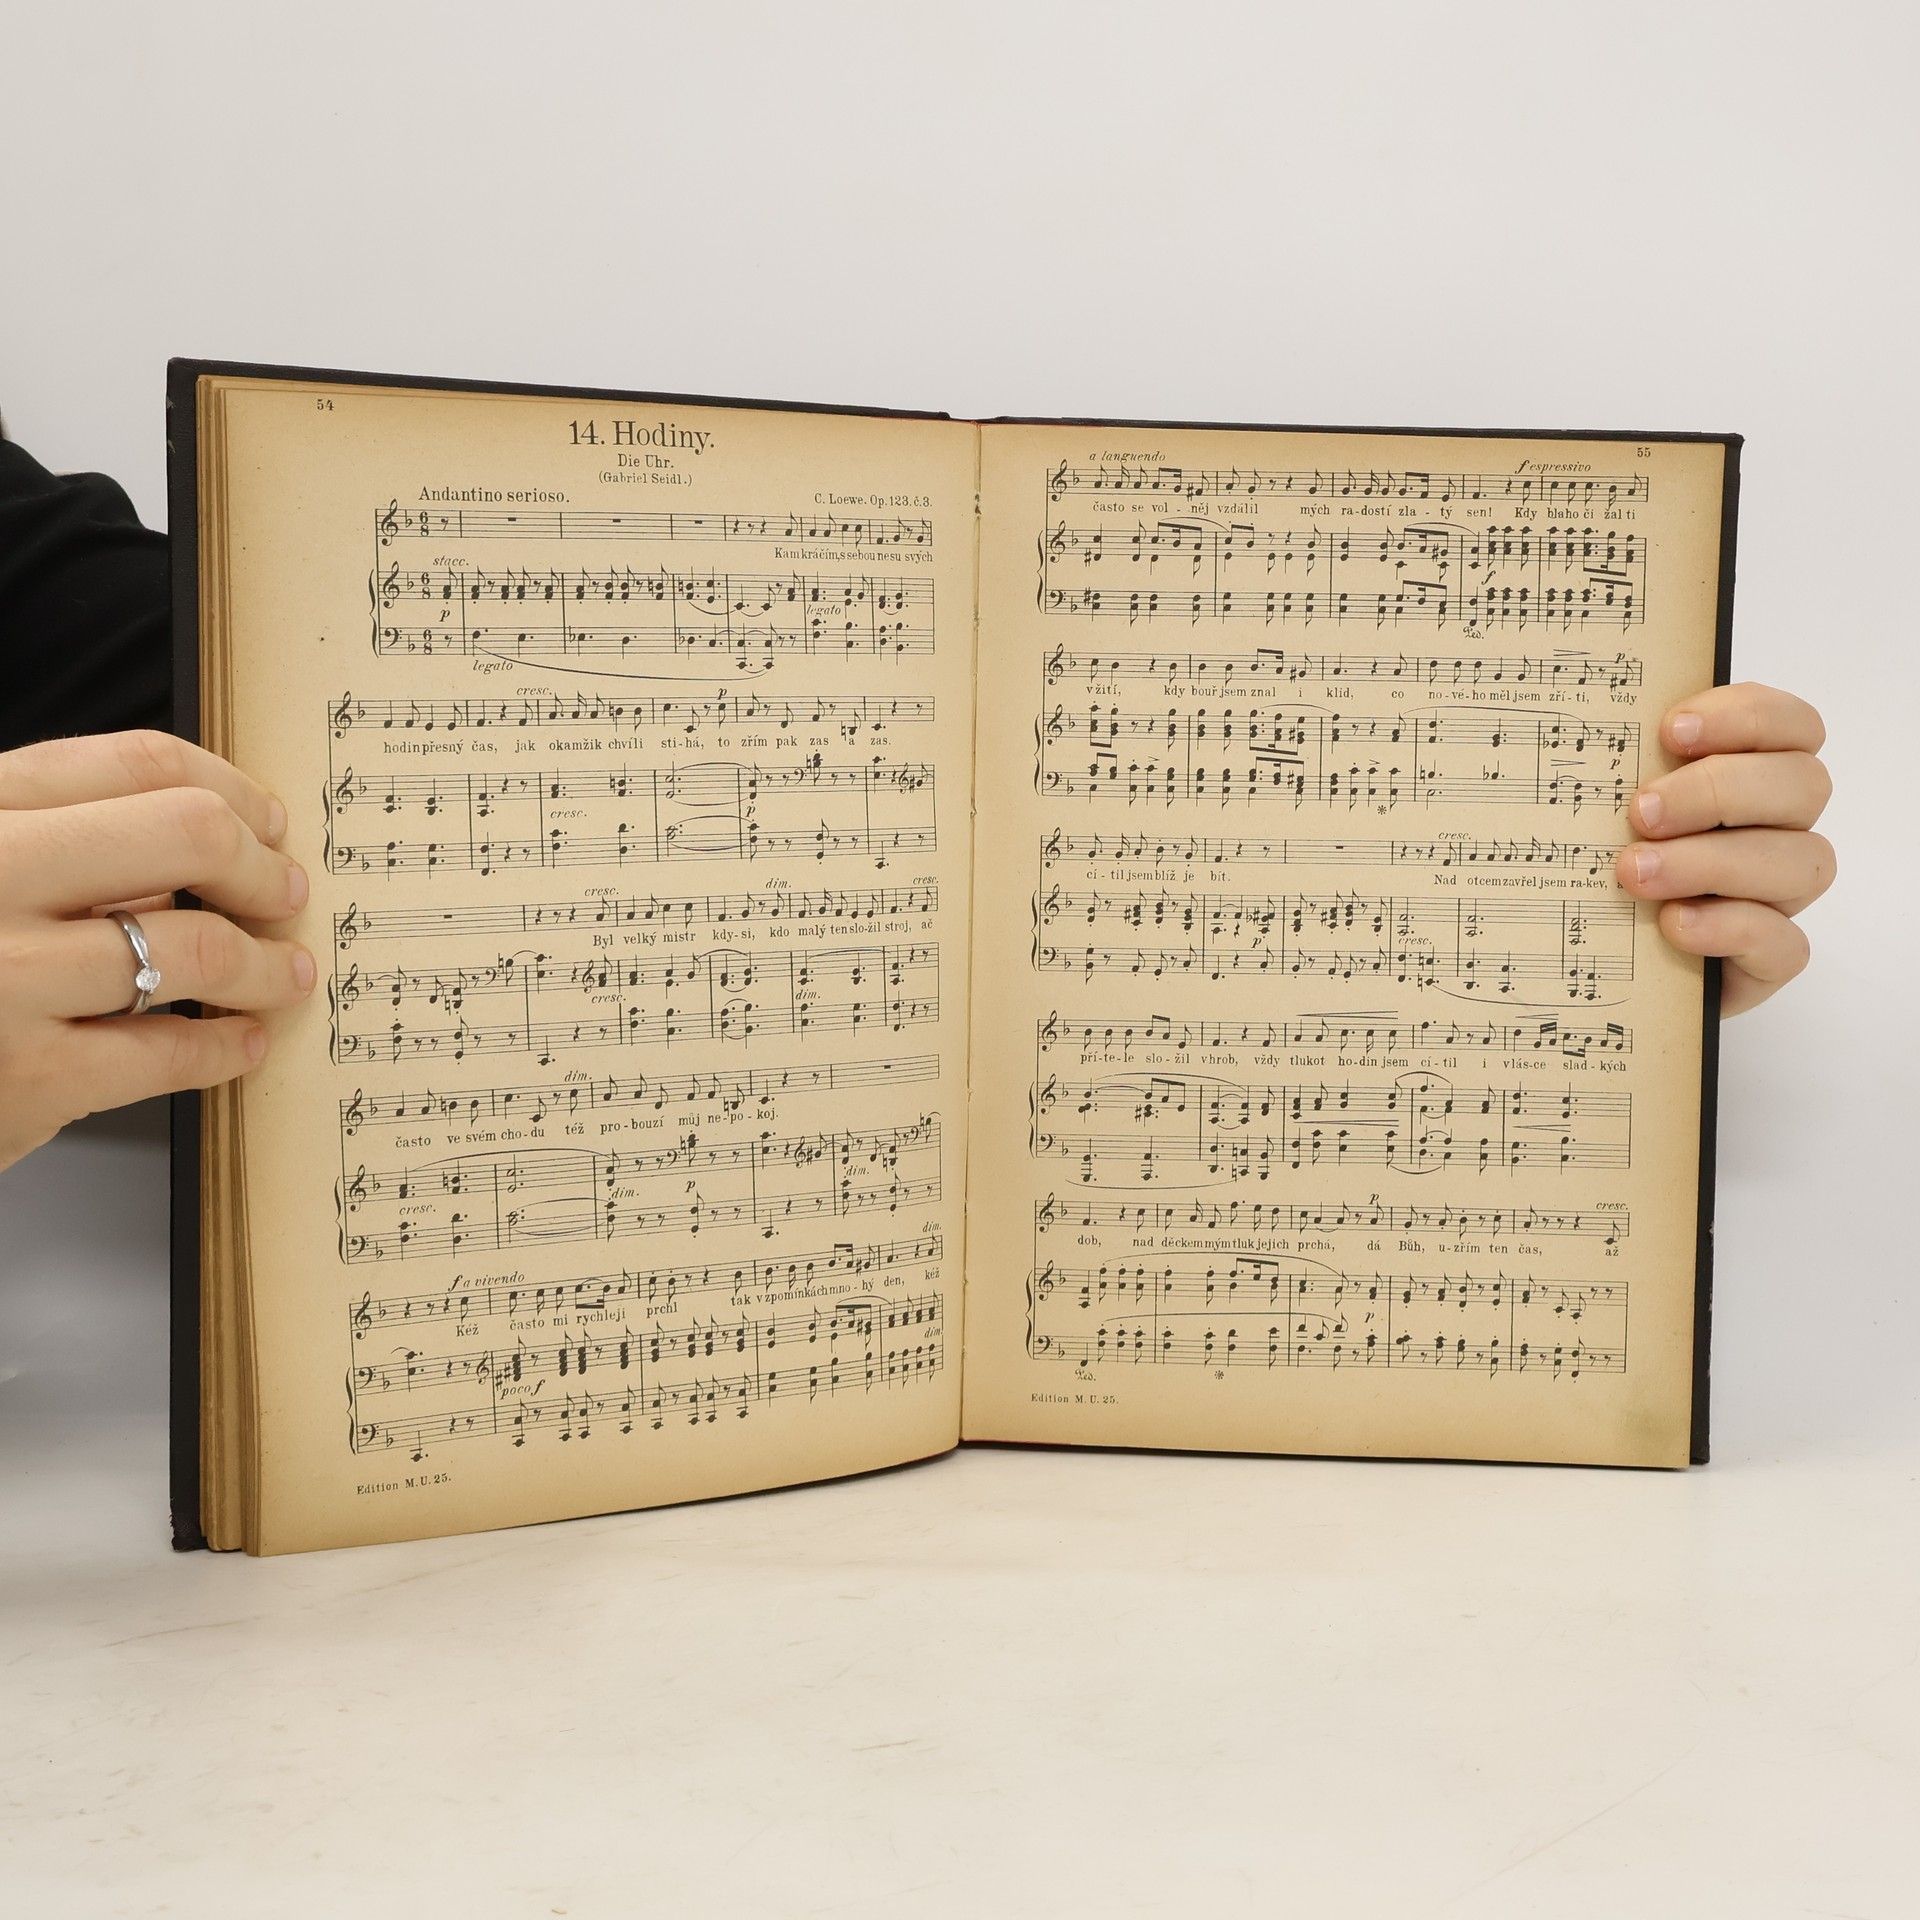 54
14. Hodiny.
Die Uhr.
(Gabriel Seidl.)
Andantino serioso.
C. Loewe. Op. 123. č. 3.
Kam kráčím, s sebou nesu svých
stacc.
p
legato
legato
cresc.
p
hodin přesný čas, jak okamžik chvíli sti-há, to zřím pak zas a zas.
cresc.
p
cresc.
dim.
cresc.
Byl velký mistr kdy-si, kdo malý ten slo-žil stroj, ač
cresc.
dim.
dim.
často ve svém cho-du též pro-bouzí můj ne-po-koj.
cresc.
dim.
p
dim.
f a vivendo
dim.
Kéž často mi rychleji prchl tak v zpomínkách mno-hý den, kéž
poco f
dim.
Edition M. U. 25.
55
a languendo
f espressivo
často se vol-něj vzdálil mých ra-dostí zla-tý sen! Kdy blaho či žal ti
f
Ped.
p
v žití, kdy bouř jsem znal i klid, co no-vé-ho měl jsem zří-ti, vždy
p
cresc.
cí-til jsem blíž je bít. Nad otcem zavřel jsem ra-kev,
p
cresc.
pří-te-le slo-žil v hrob, vždy tlukot ho-din jsem cí-til i v lás-ce slad-kých
p
cresc.
dob, nad děckem mým tluk jejich prchá, dá Bůh, u-zřím ten čas, až
p
Ped.
Edition M. U. 25.